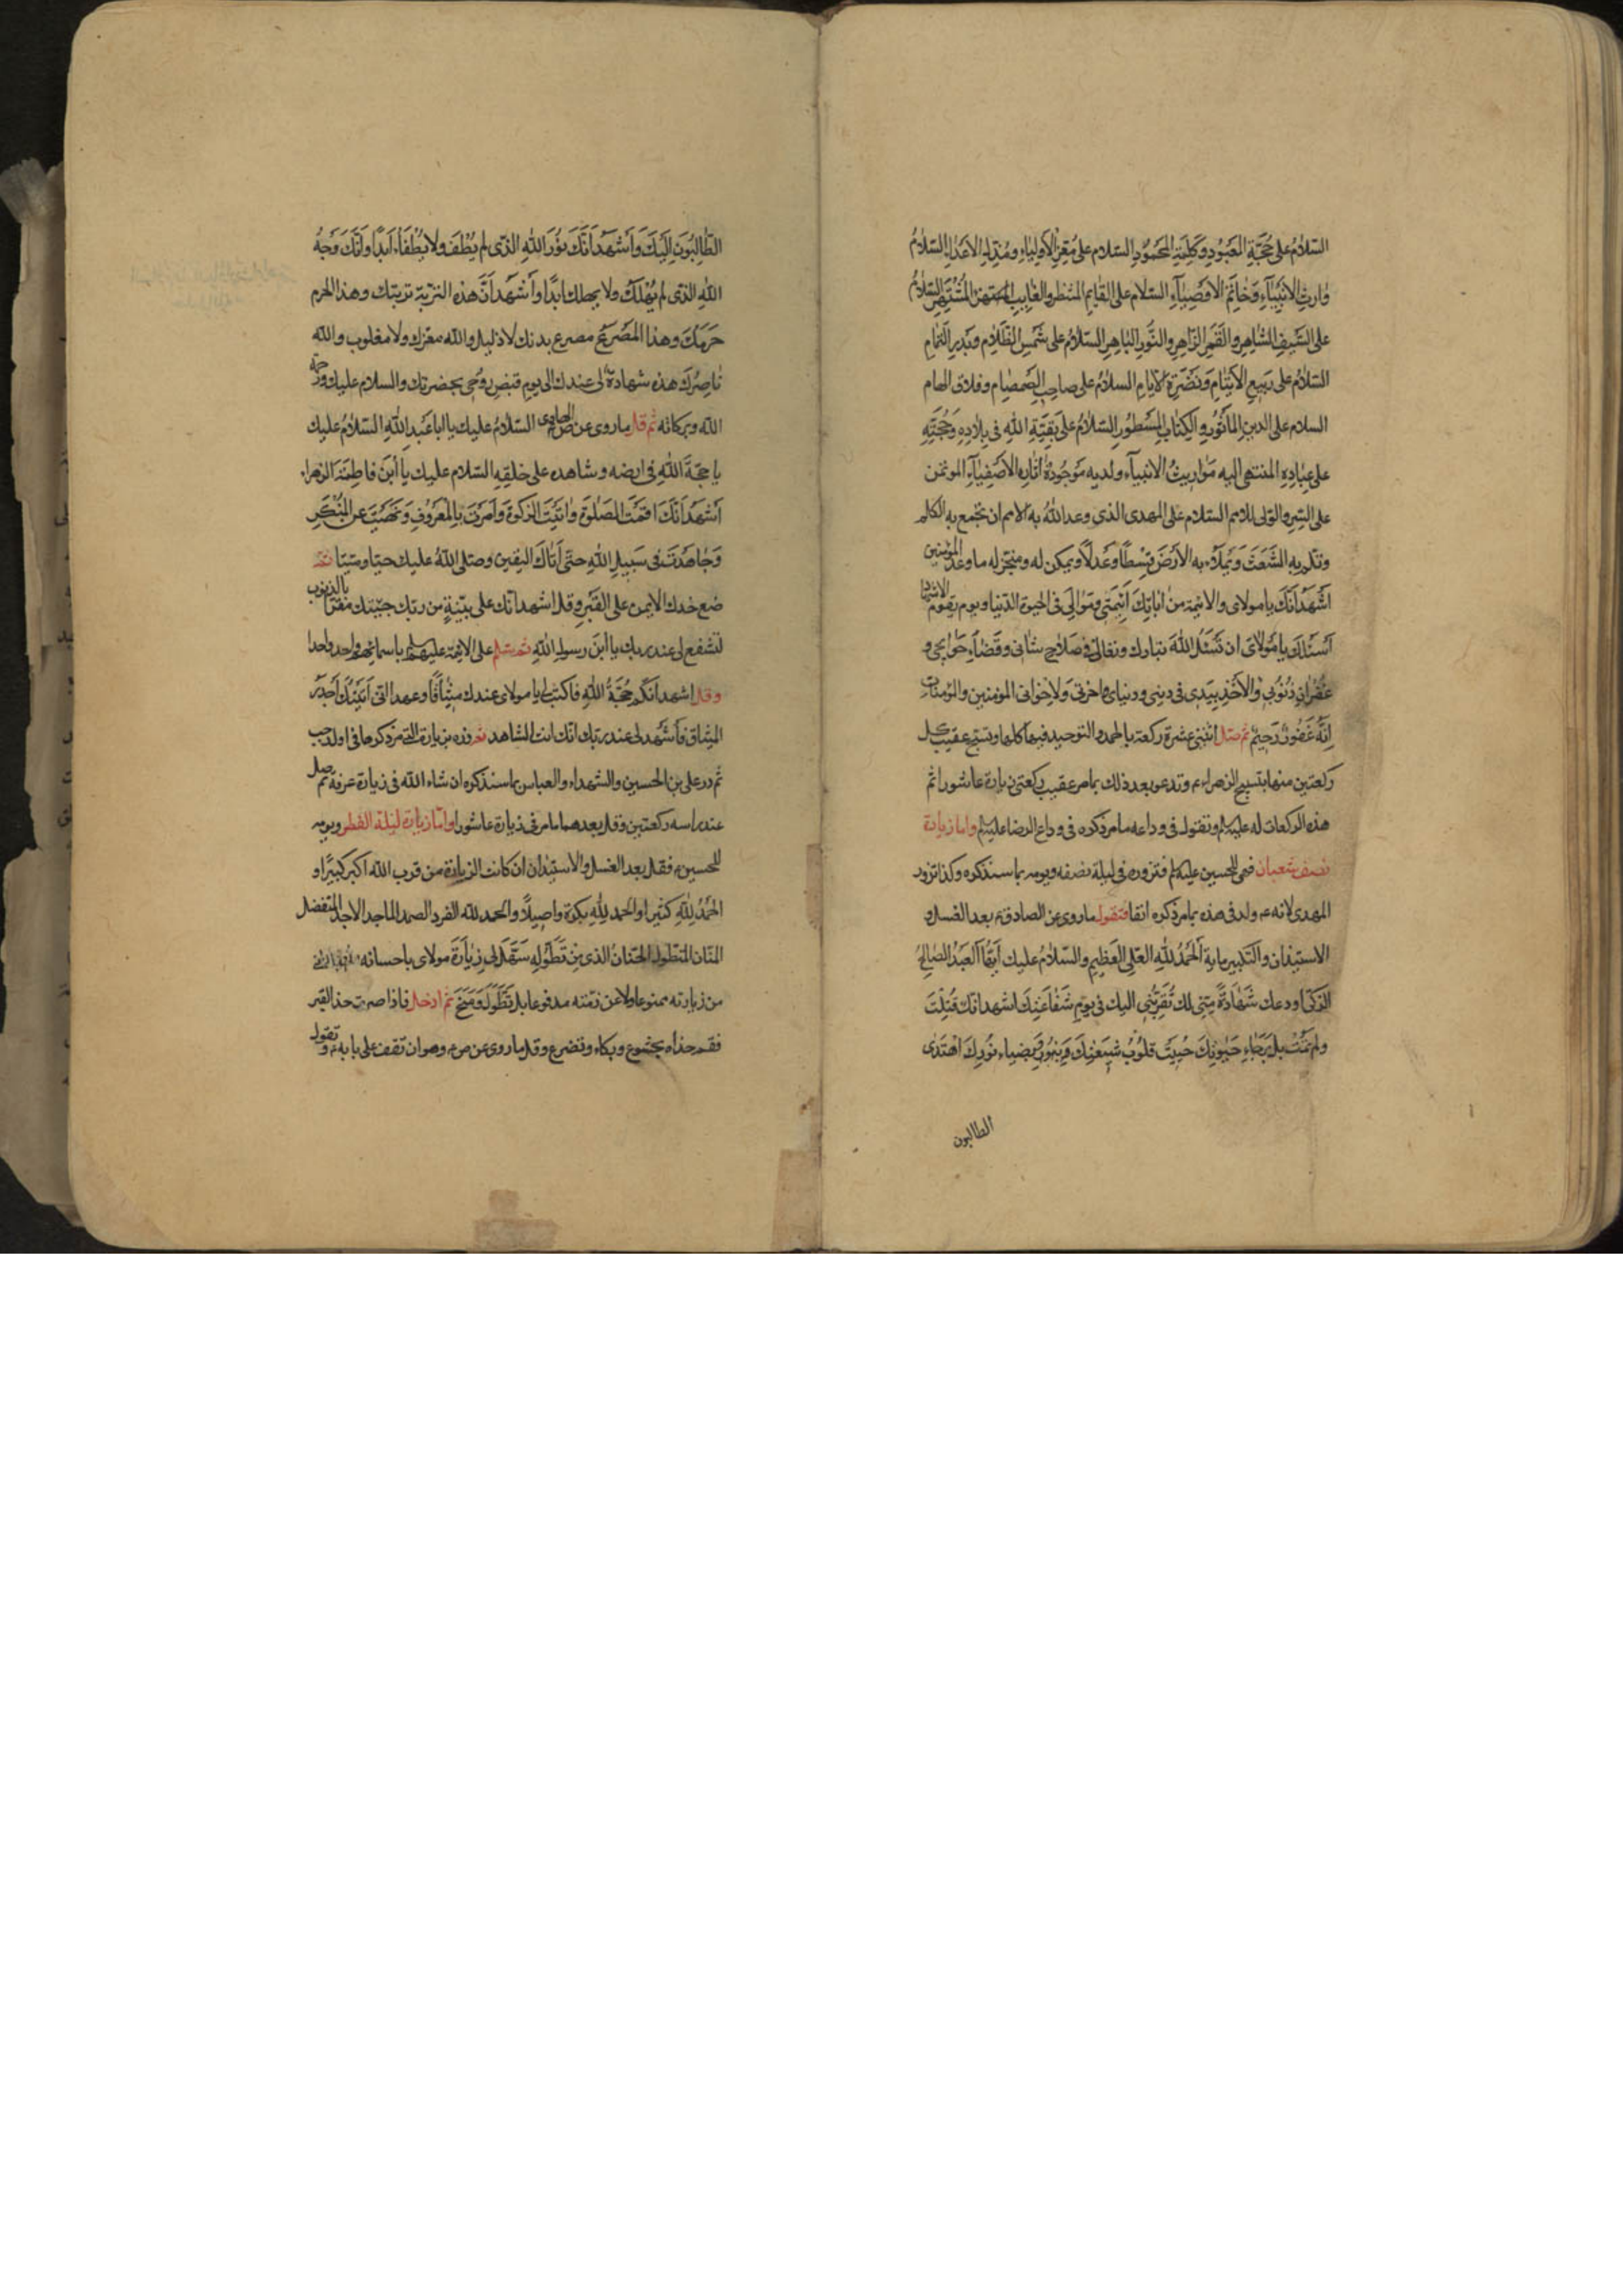 السَّلامُ عَلى حُجَّةِ المَعبُودِ وَكَلِمَةِ المَحمُودِ السّلام على مُعِزِّ الأَولِياءِ ومُذِلِّ الأعداءِ السّلامُ
وٰارِثِ الأَنبِيَآءِ وَخٰاتَمِ الأَوصِيَآءِ السّلام على القٰايمِ المنتظر والغٰايبِ المُشتَهِر السّلامُ
على السَّيفِ الشّٰاهِرِ والقَمَرِ الزّٰاهِرِ والنُّورِ البٰاهِرِ السّلامُ على شَمسِ الظَّلامِ وَبَدرِ التَّمامِ
السّلامُ على رَبيعِ الأَيتٰامِ وَنَضرَةِ الأيام السلامُ على صاحِبِ الصَّمصٰامِ وفلاق الهام
السلام على الدينِ المَأثُورِ والكِتٰابِ المَسطُورِ السّلامُ على بَقِيَّةِ اللهِ في بِلادِهِ وَحُجَّتِهِ
على عِبٰادِهِ المنتهى اليه مَوٰاريثُ الانبيآءِ ولديه مَوجُودةٌ اثارُ الأَصفِيٰآءِ المؤتمن
على السِّرِ والوَلى للامر السّلام على المهدى الذى وعد اللهُ به الامم ان يجمع به الكلم
وتلم بِهِ الشَّعَثَ وَيَملَأَ بِهِ الأَرضَ قِسطًا وَعَدلاً ويمكن له ومنجز له ما وعد المؤمنين
اَشهَدُ اَنَّكَ يا مولاى والائِمّة من اٰبٰائِكَ اَئِمَّتى وَمَوٰالِىَّ فى الحيوة الدّنيا ويوم يقومُ الاشهاد
اَسئَلُكَ يا مَولاىَ ان تَسئَلَ اللهَ تبارك وتعالى فى صَلاحِ شانى وقَضٰآءِ حَوٰايجى و
غُفرٰانِ ذُنُوبى والأَخذِ بِيَدى فى دينى ودنياى واخرتى وَلإِخوانى المؤمنين والمؤمنات
اِنَّهُ غَفُورٌ رَحِيمٌ ثم صَلِّ اثنتى عشرة ركعة بالحمد والتوحيد فيها كلها وتسبح عقيب كل
ركعتين منها بتسبيح الزهراءء وتدعو بعد ذلك بما مر عقيب ركعتى زيارة عاشورا ثم
هذه الركعات له عليه لم وتقول فى وداعه ما مر ذكره فى وداع الرضا عليه لم واما زيارة
نصف شعبان فهى للحسين عليه لم فتزوره فى ليلة نصفه ويومه بما سنذكره وكذا تزور
المهدى لانهء ولد فى هذه بما مر ذكره انفا فتقول ما روى عن الصادقء بعد الغسل و
الاستيذان والتكبير ماية اَلحَمدُ لِلّٰهِ العَلِىِّ العَظِيمِ والسّلامُ عليك اَيُّهَا العَبدُ الصّالِحُ
الزكىّ اودعك شَهٰادَةً مِنّى لك تُقَرِّبُنى اليك فى يَومِ شَفٰاعَتِكَ اشهد انّك قُتِلتَ
ولم تَمُت بل بِرَجٰاءِ حَيٰوتِكَ حَيِيَت قلُوبُ شيعَتِكَ وَبِضياءِ نُورِكَ اهتَدى
الطالبون
الطّٰالِبُونَ اِلَيكَ وَاَشهَدُ اَنَّكَ نوُرُ اللهِ الَّذى لم يُطفَ ولا يُطفَاُ ابَدًا وَاَنَّكَ وَجهُ
اللهِ الذى لم يُهلَك ولا يهلك ابَدًا وأشهد اَنَّ هذه التربةَ تربتك وهذا الحرم
حَرَمُكَ وهٰذا المَصرَعُ مصرع بدنك لا ذليل والله معزك ولا مغلوب والله
نٰاصِرُكَ هذه شهادةٌ لى عندك الى يوم قبض رُوحى بحضرتك والسلام عليك ورحمة
الله وبركاته ثم قل ما روى عن الهادى السّلامُ عليك يا ابا عَبدِ اللهِ السّلامُ عليك
يا حجّةَ اللهِ فى ارضه وشاهده على خلقِهِ السّلام عليك يا اَبنَ فاطِمَةَ الزهرا
اَشهَدُ اَنَّكَ اقَمتَ الصَّلوةَ وَاٰتَيتَ الزَّكوةَ وَاَمَرتَ بِالمَعرُوفِ وَنَهَيتَ عن المُنكَرِ
وَجٰاهَدتَ فى سَبِيلِ اللهِ حتّى اَتٰاكَ اليقين وصلى اللهُ عليك حيّا وميّتا ثم
ضع خدك الايمن على القَبرِ وقل اشهد انّك على بيّنةٍ من ربك جئتك مقرّا بالذنوب
لتشفع لى عند ربك يا اَبنَ رسولِ اللهِ ثم سلم على الائمّة عليهم لم باسمائهم واحدا واحدا
وقل اشهد اَنّكم حُجّةُ اللهِ فاكتب لى يا مولاى عندك ميثاقًا وعهدا انى اَتَيتُكَ اُجدّد
الميثاق فَاَشهد لى عند ربك انّك انت الشاهد ثم زره بزيارة التى مر ذكرها فى اول رجب
ثم زر على بن الحسين والشهداء والعباس بما سنذكره ان شاء الله فى زيارة عرفة ثم صل
عند راسه ركعتين وقل بعدهما ما مر فى زيارة عاشورا واما زيارة ليلة الفطر ويومه
للحسينء فقل بعد الغسل والاستيذان ان كانت الزيارة من قرب الله اكبر كبيرًا و
الحَمدُ لِلّٰهِ كثيرا والحمد لِلّٰهِ بكرة واصيلاً والحمد للّه الفرد الصمد الماجد الاحد المتفضل
المنّان المتطوّل الحنّان الذى مِن تَطَوُّلِهِ سَهَّلَ لى زِيٰارَةَ مولاى باحسانه
من زيارته ممنوعا ولا عن ذمّته مدفوعا بل تَطَوَّلَ وَمَنَحَ ثم ادخل فاذا صرت حذا القبر
فقم حذاه بخشوع وبكاء وتضرع وقل ما روى عن صء وهو ان تقف على بابهء وتقول